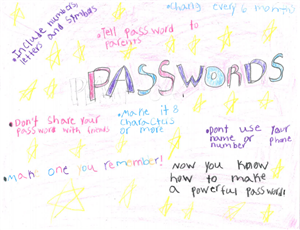 •Include numbers,
letters and symbols
•Tell password to
parents
•Chang every 6 months
PASSWORDS
•Don't share your
password with friends
•Make it 8
charactcrs
or more
•Dont use your
name or phone
number
•Make one you remember!
Now you know
how to make
a powerful password!